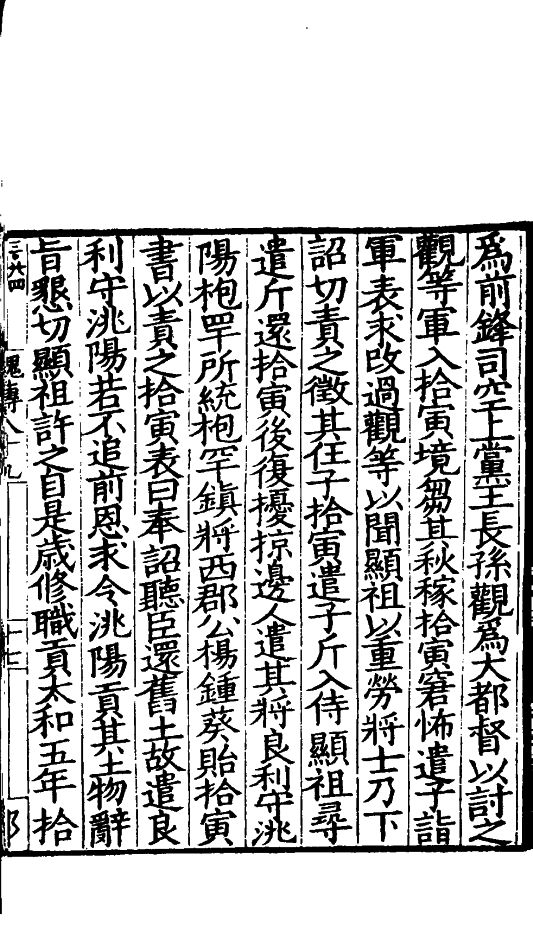 爲前鋒司空上黨王長孫觀爲大都督以討之
觀等軍入拾寅境芻其秋稼拾寅窘怖遣子詣
軍表求改過觀等以聞顯祖以重勞將士乃下
詔切責之徵其任子拾寅遣子斤入侍顯祖尋
遣斤還拾寅後復擾掠邊人遣其將良利守洮
陽枹罕所統枹罕鎮將西郡公楊鍾葵貽拾寅
書以責之拾寅表曰奉詔聽臣還舊土故遣良
利守洮陽若不追前恩求令洮陽貢其土物辭
旨懇切顯祖許之自是歲修職貢太和五年拾
三百六四
魏傳八十九
十七